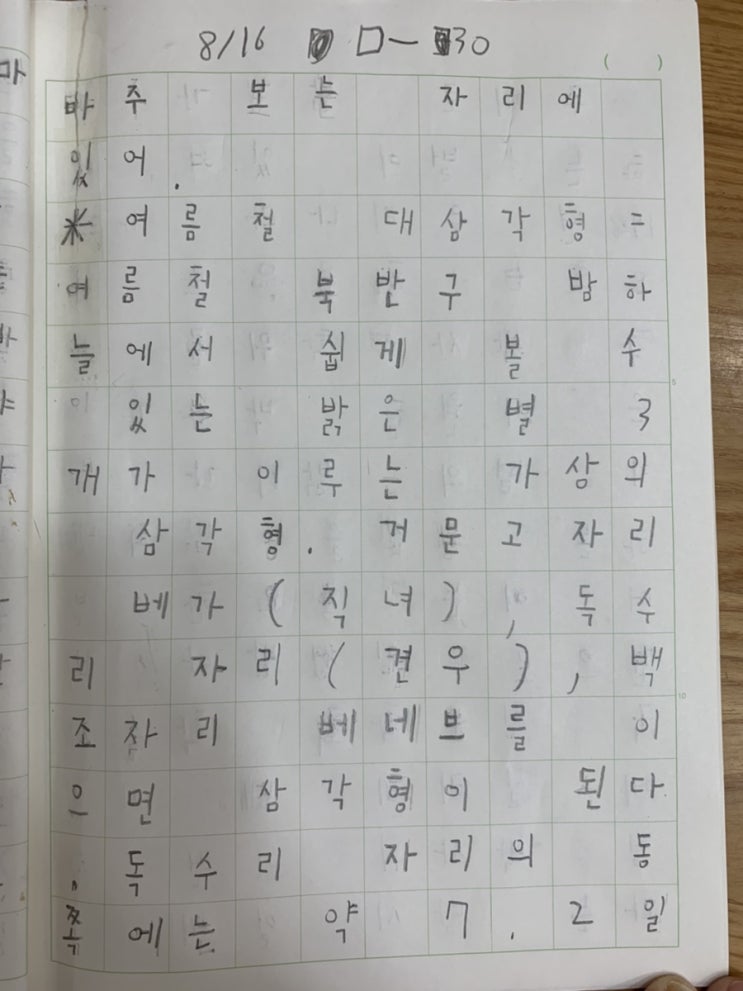 8/16 ㅁ-30
( )
바추 보는 자리에
있어.
※여름철 대삼각형=
여름철 북반구 밤하
늘에서 쉽게 볼 수
있는 밝은 별 3
개가 이루는 가상의
삼각형. 거문고자리
베가(직녀), 독수
리 자리(견우), 백
조자리 베네브를 이
으면 삼각형이 된다
. 독수리 자리의 동
쪽에는 약 7.2일